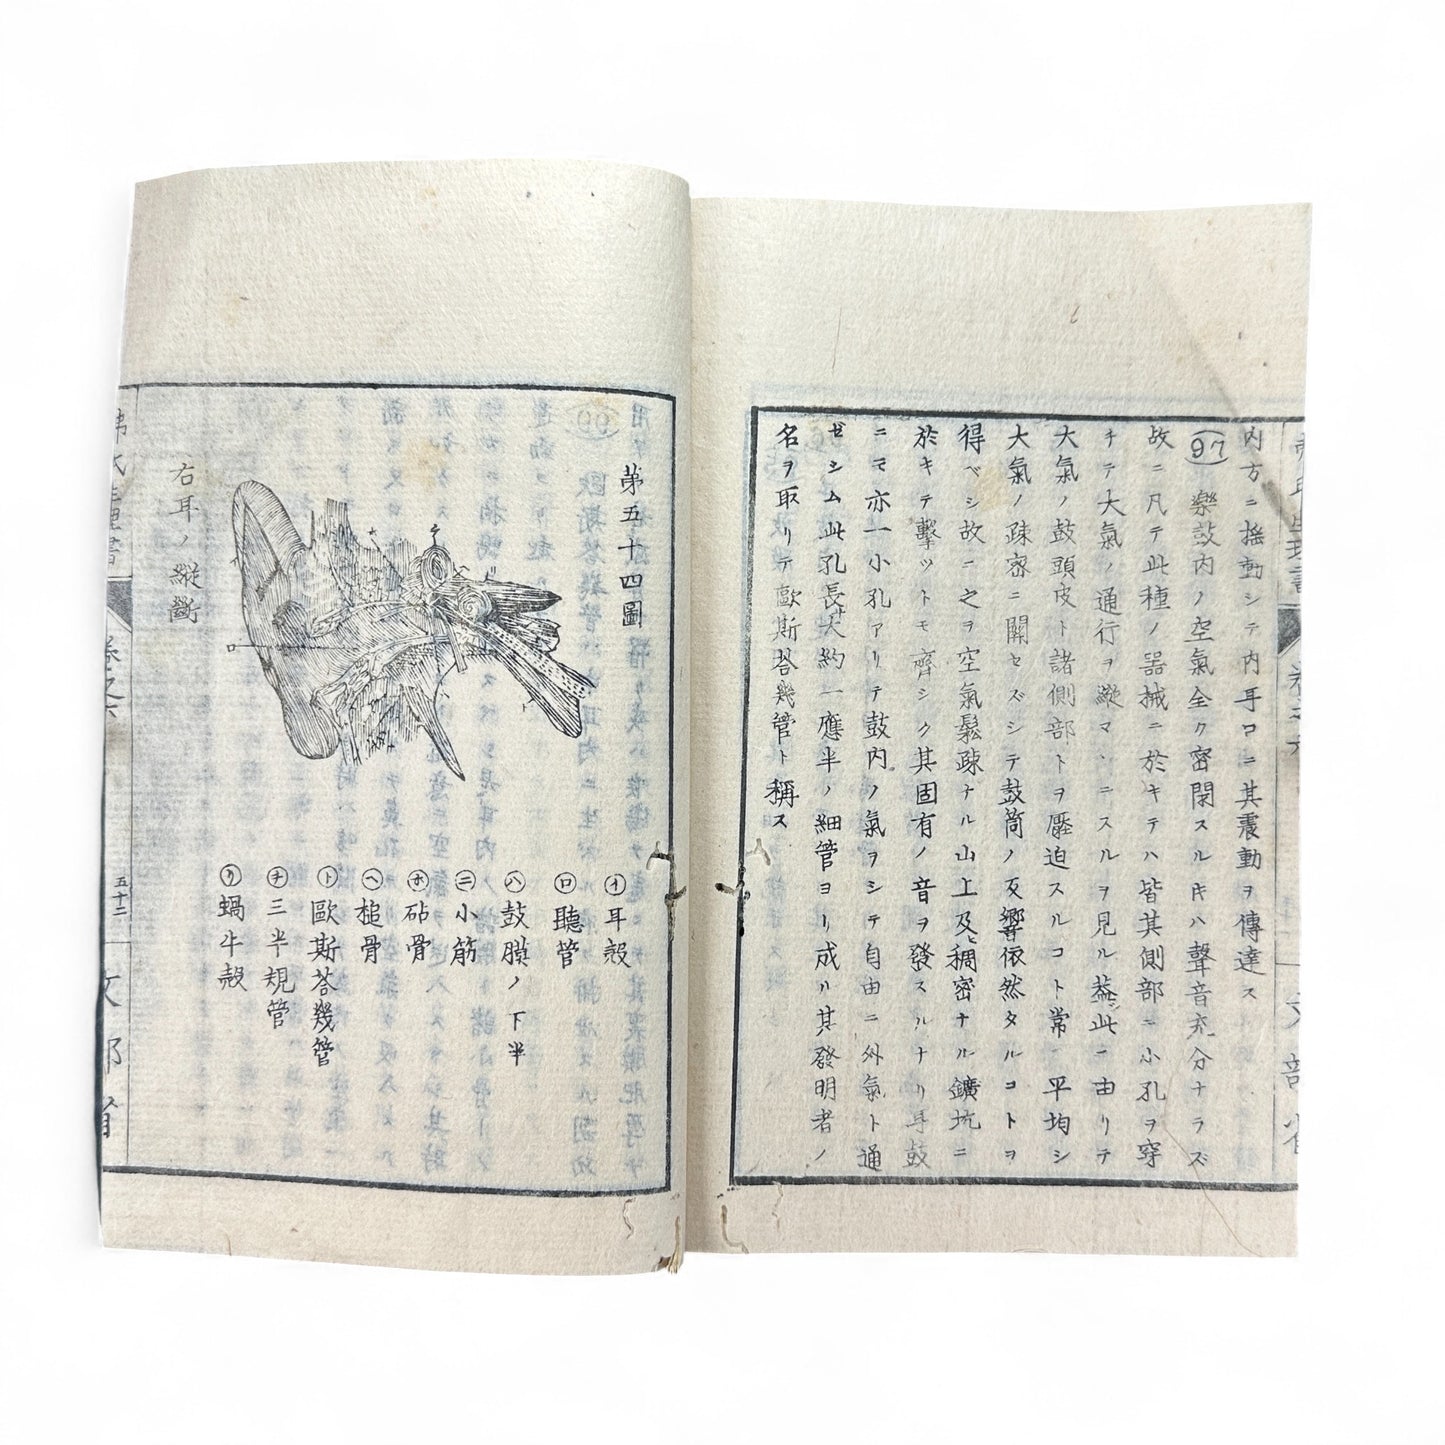 内方ニ撫動シテ内耳コニ其震動ヲ傳達ス
(97) 樂鼓内ノ空氣全ク密閉スルキハ聲音充分ナラズ
故ニ凡テ此種ノ器械ニ於キテハ皆其側部ニ小孔ヲ穿
チテ大氣ノ通行ヲ縱マヽニスルヲ見ル葢シ此ニ由リテ
大氣ノ鼓頭皮ト諸側部トヲ壓迫スルコト常ニ平均シ
大氣ノ疎密ニ關セズシテ鼓筒ノ反響依然タルコトヲ
得ベシ故ニ之ヲ空氣鬆疎ナル山上及ヒ稠密ナル鑛坑ニ
於キテ擊ツトモ齊シク其固有ノ音ヲ發スルナリ耳鼓
ニモ亦一小孔アリテ鼓内ノ氣ヲシテ自由ニ外氣ト通
ゼシム此孔長サ大約一應半ノ細管ヨリ成ル其發明者ノ
名ヲ取リテ歐斯荅幾管ト稱ス
第五十四圖
右耳ノ縱斷
㋑耳殻
㋺聽管
㋩鼓膜ノ下半
㋥小筋
㋭砧骨
㋬槌骨
㋣歐斯荅幾管
㋠三半規管
㋷蝸牛殻
卷之六
五十二
文部省